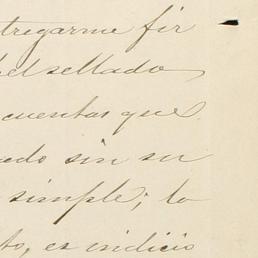 tregarme fir
el sellado
cuentas que
do sin su
simple; lo
to, es indicio